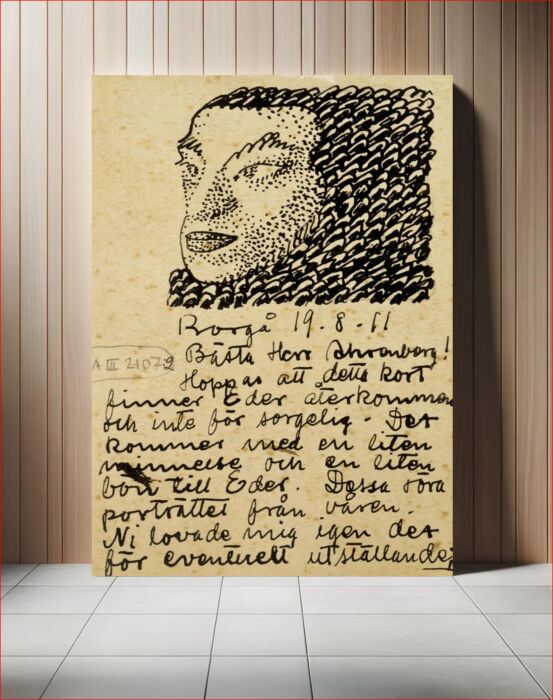 Borgå 19.8.11
A III 21079
Bästa Herr Ahrenberg!
Hoppas att detta kort
finner Eder återkommen
och inte för sorgelig - Det
kommer med en liten
och en liten
bön till Eder. Dessa röra
porträttet från våren.
Ni lovade mig igen det
för eventuell utställande